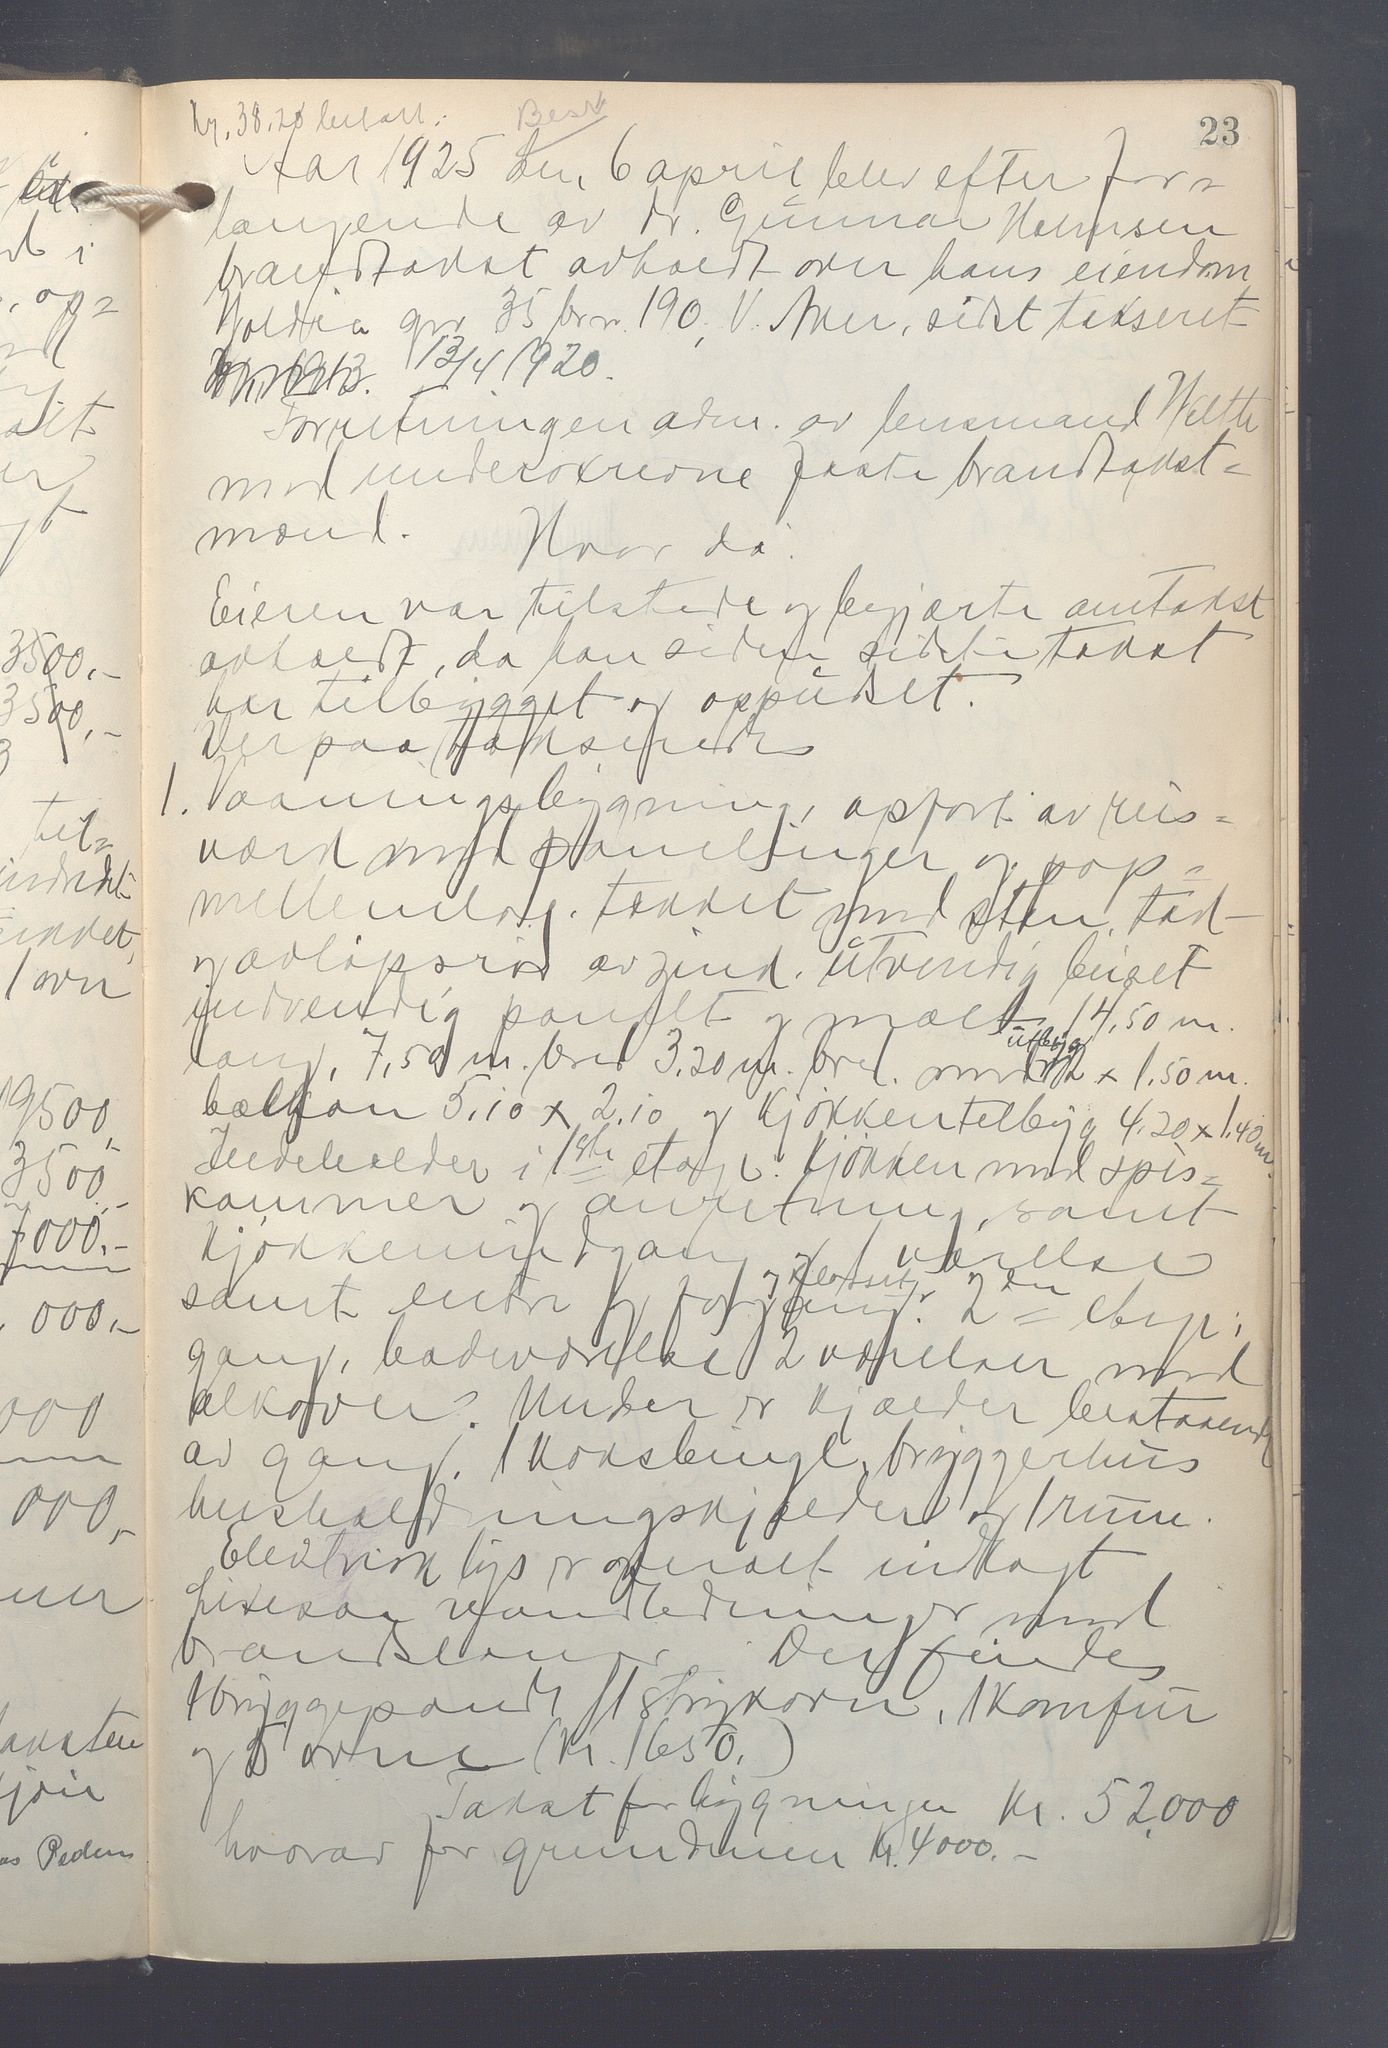 23
Kr. 38,20 betalt.
Besv
Aar 1925 den 6 april blev efter for-
langende av dr. Gunnar Holmsen
brandtakst avholdt over hans eiendom
gnr 35 brnr. 190, V. Aker, sidst takseret
13/4 1920.
Forretningen adm. av lensmand
med underskrevne faste brandtakst-
mænd. Hvor da:
Eieren var tilstede og begjærte omtakst
avholdt, da han siden sidste takst
har tilbygget og oppudset.
Derpaa takseredes
1. Vaaningsbygning, opført av reis-
værk med panelinger og pap-
mellemlag. tækket med sten, tak-
og avløpsrør av zink. Utvendig beiset
indvendig panelt og malt 14,50 m.
lang, 7,50 m. bred 3,20 m. bred. med utbyg 2 x 1,50 m.
balkon 5,10 x 2,10 og kjøkkentilbyg 4,20 x 1,40 m.
Indeholder i 1ste etage: Kjøkken med spis-
kammer og anretning, samt
kjøkkenindgang og 1 værelse
samt entre og forgang og klosett. 2den etage:
gang, badeværelse 2 værelser med
alkover. Under er kjælder bestaaende
av gang, 1 koksbinge, bryggerhus
husholdningskjælder og 1 rum.
Elektrisk lys er overalt indlagt
likesaa vandledninger med
brandslange. Der findes
1 bryggepande 1 strykovn, 1 komfur
og 5 ovne (Kr. 1650.)
Takst for bygningen Kr. 52,000
hvorav for grundmuren Kr. 4000.-
3500,-
3500,-
til-
1 ovn
19500,
3500,-
7000,-
000,-
000
000,-
taksten
Pedersen